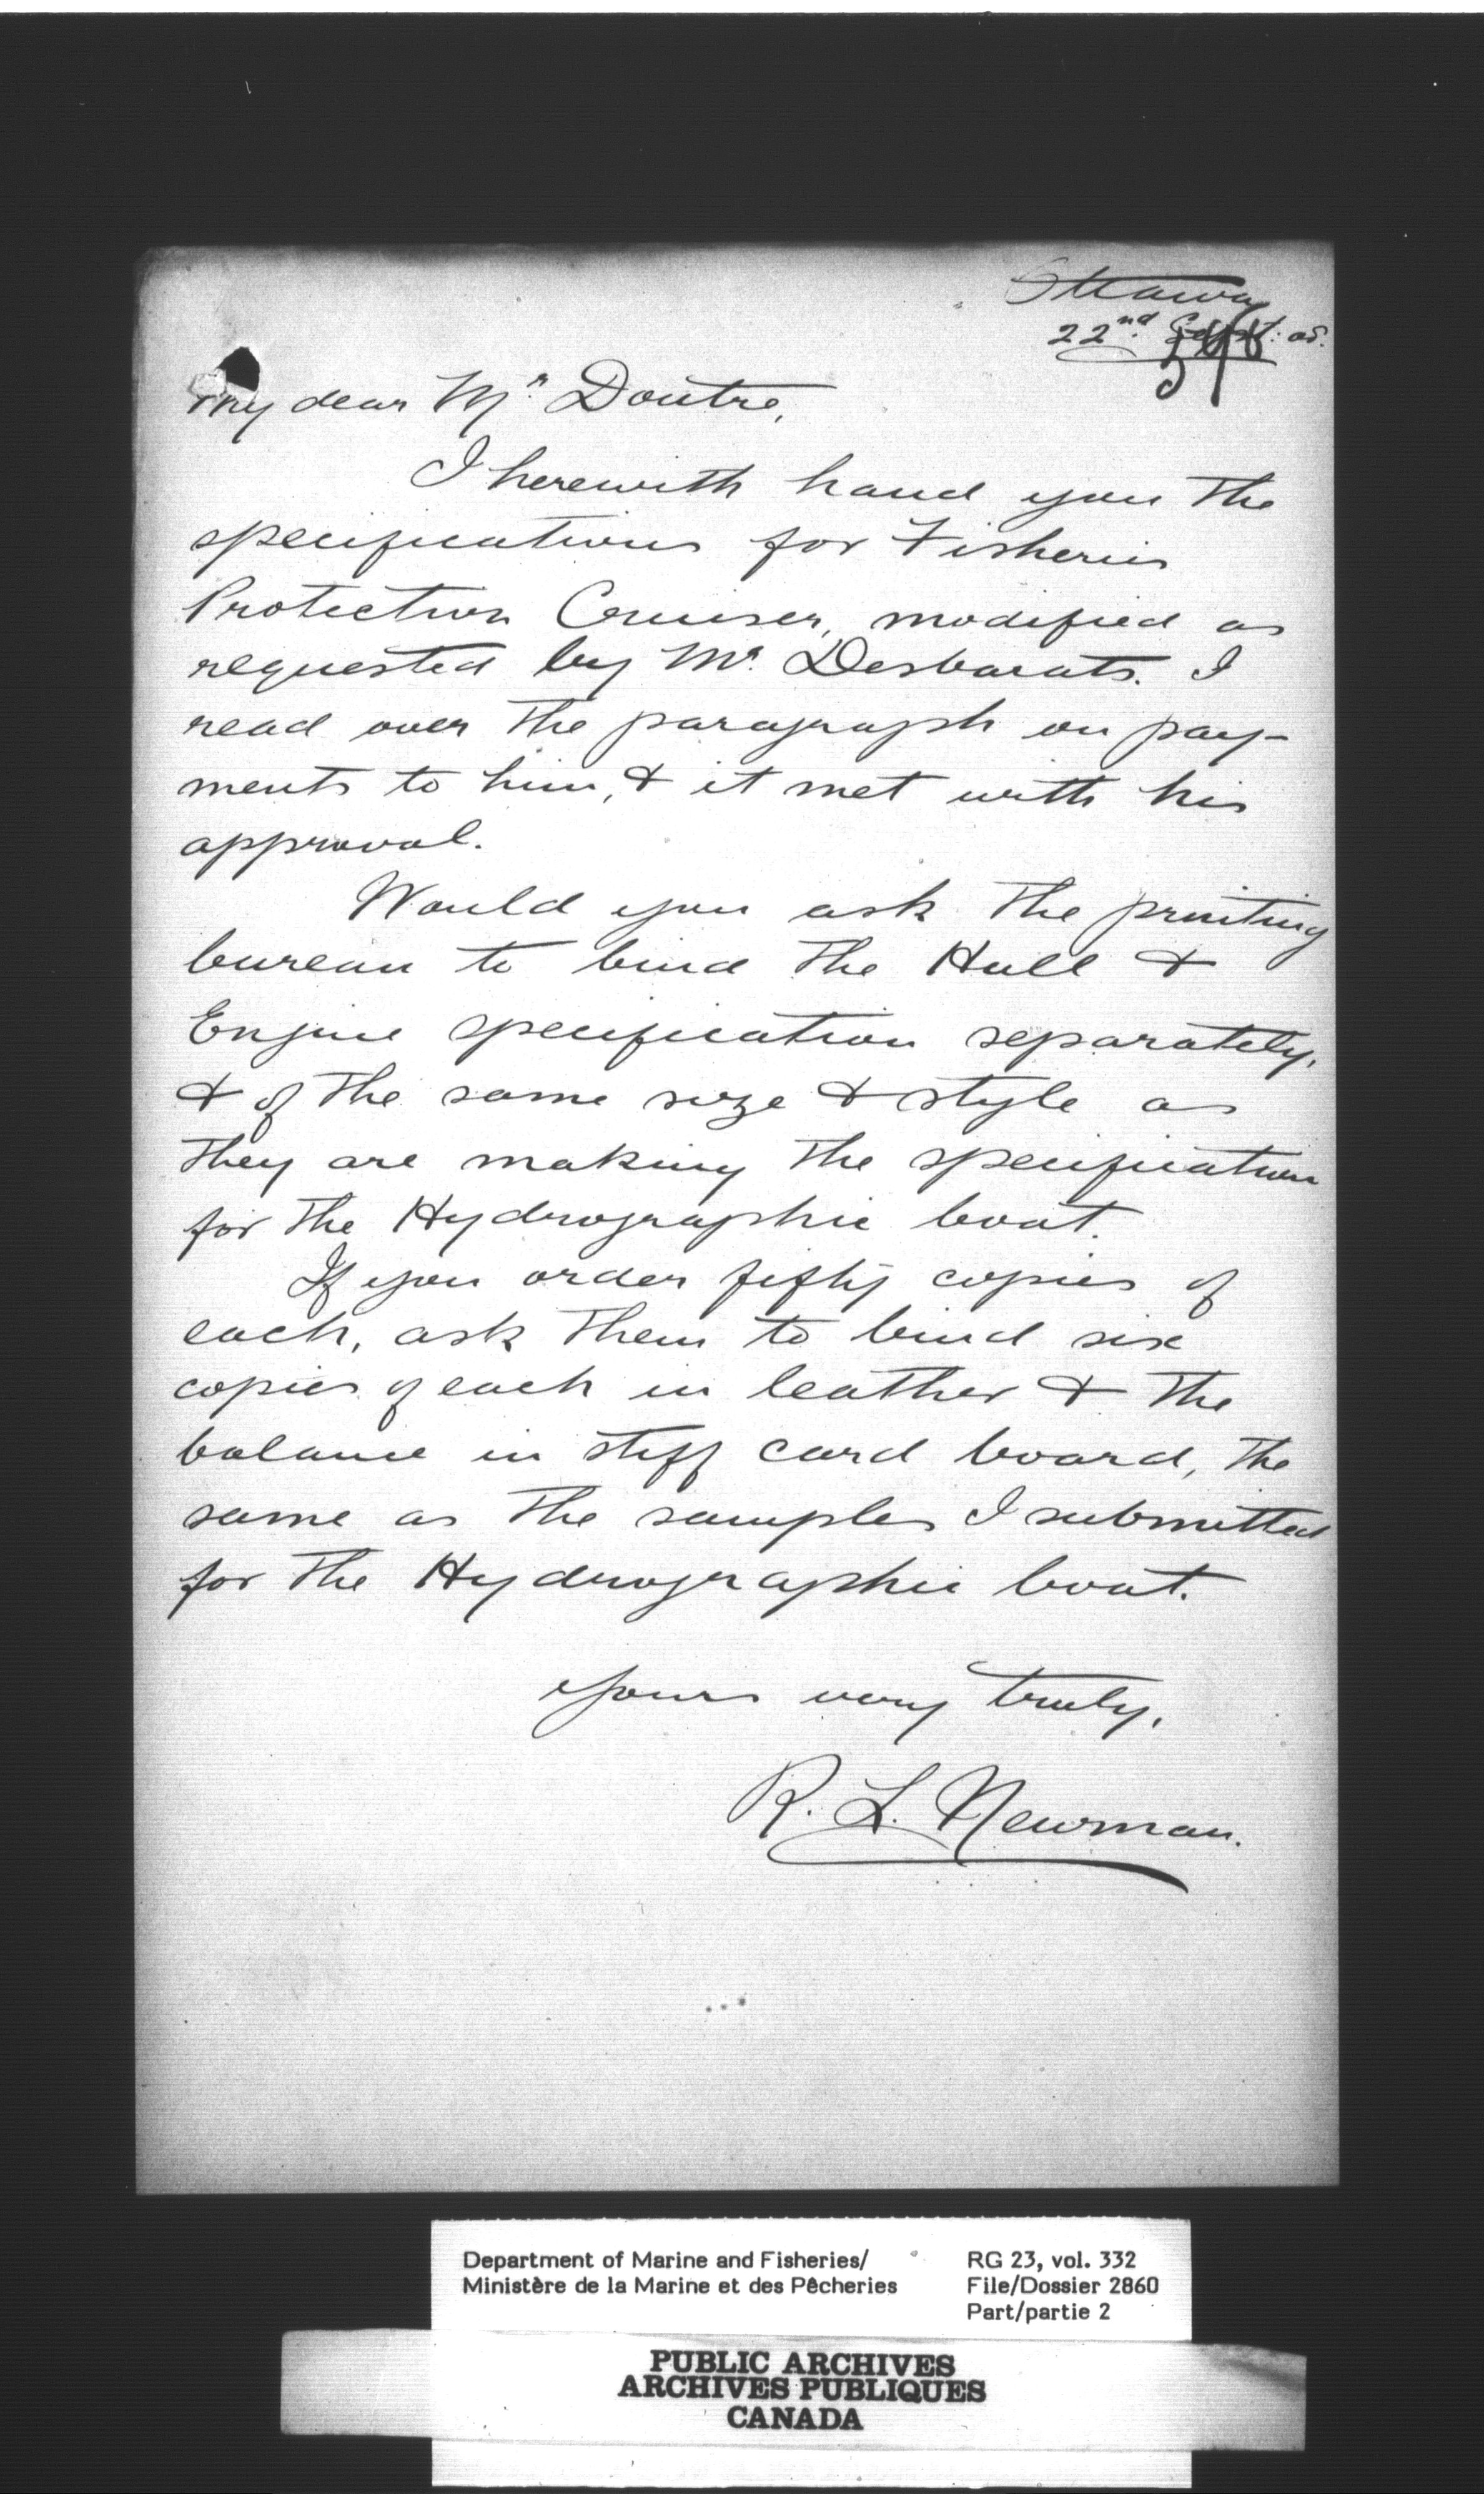 Ottawa
22nd Sept: 08.
My dear Mr. Doutre,
I herewith hand you the
specifications for Fisheries
Protection Cruiser, modified as
requested by Mr. Desbarats. I
read over the paragraph on pay-
ments to him, & it met with his
approval.
Would you ask the printing
bureau to bind the Hull &
Engine specification separately,
& of the same size & style as
they are making the specification
for the Hydrographic boat.
If you order fifty copies of
each, ask them to bind six
copies of each in leather & the
balance in stiff card board, the
same as the samples I submitted
for the Hydrographic boat.
Yours very truly,
R. L. Newman.
Department of Marine and Fisheries/
Ministère de la Marine et des Pêcheries
RG 23, vol. 332
File/Dossier 2860
Part/partie 2
PUBLIC ARCHIVES
ARCHIVES PUBLIQUES
CANADA